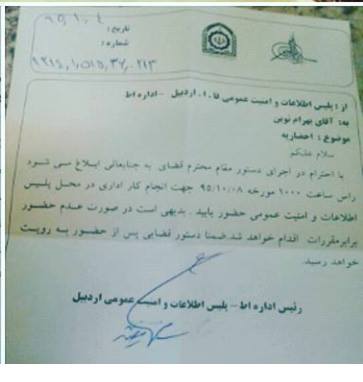 تاریخ: ۹۵/۱۰/۴
شماره:
از: پلیس اطلاعات و امنیت عمومی فا.ا. اردبیل - اداره اط
به: آقای بهرام نوین
موضوع: احضاریه
سلام علیکم
با احترام در اجرای دستور مقام محترم قضای به جنابعالی ابلاغ می شود
راس ساعت ۱۰۰۰ مورخه ۹۵/۱۰/۰۸ جهت انجام کار اداری در محل پلیس
اطلاعات و امنیت عمومی حضور یابید. بدیهی است در صورت عدم حضور
برابرمقررات اقدام خواهد شد.ضمنا دستور قضایی پس از حضور به رویت
خواهد رسید.
رئیس اداره اط - پلیس اطلاعات و امنیت عمومی اردبیل